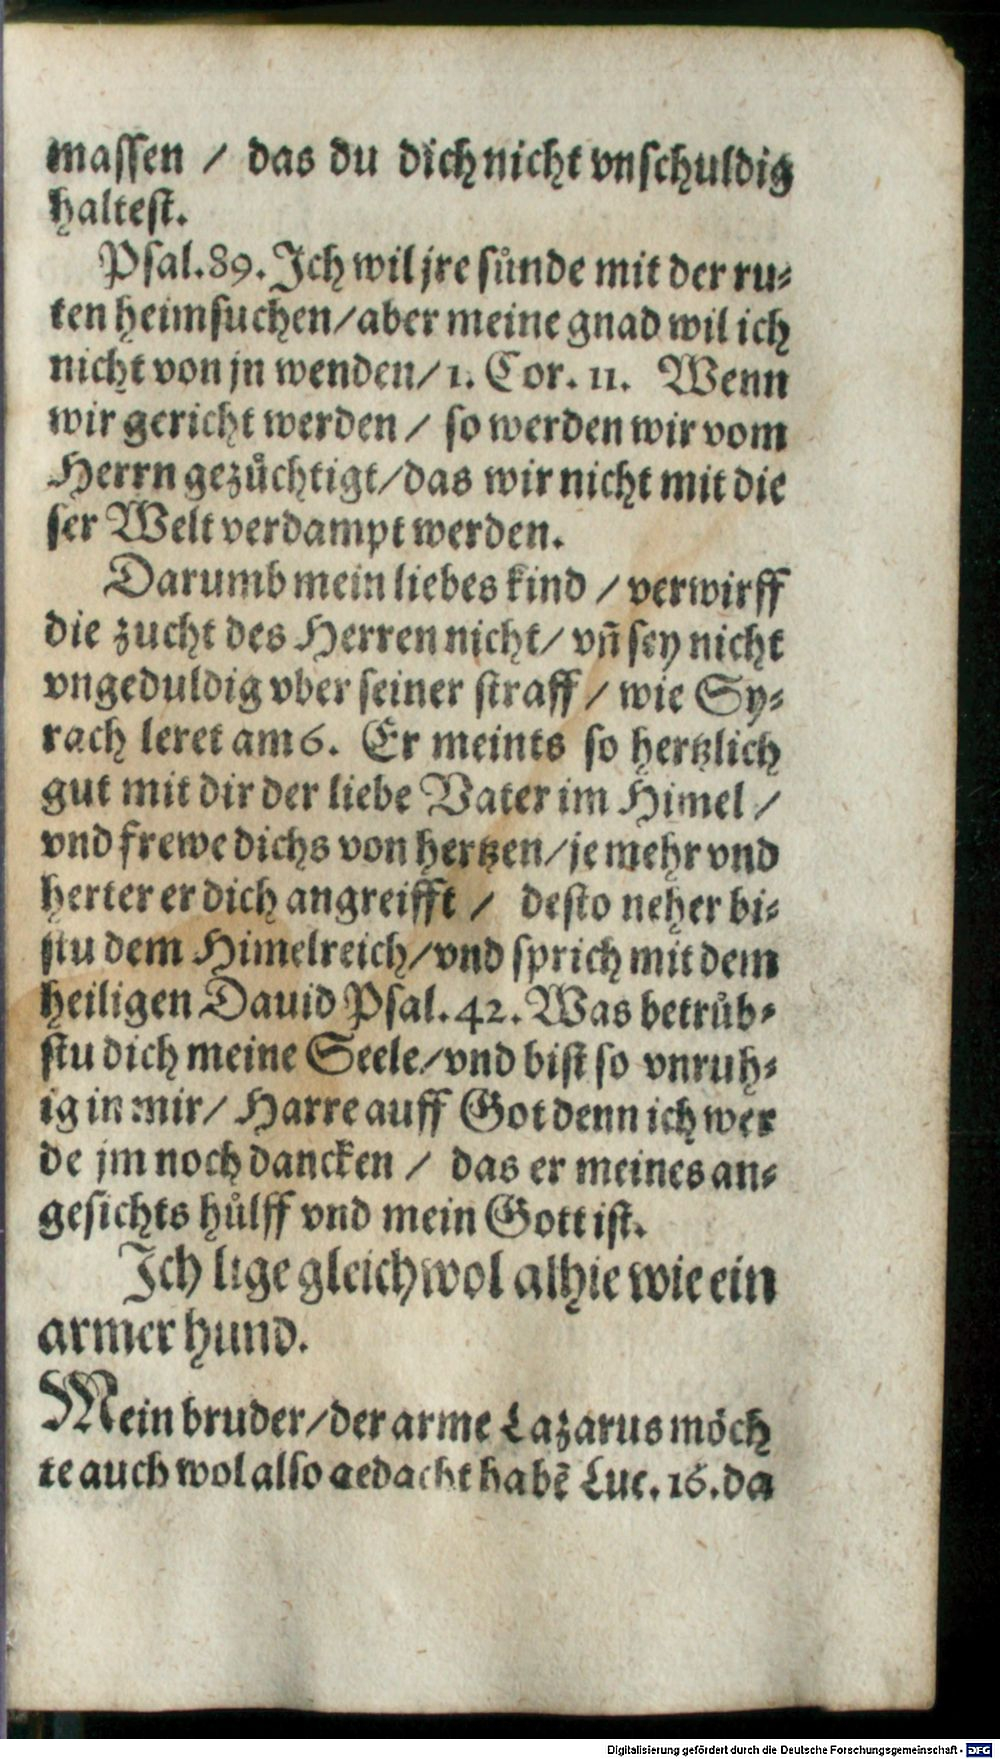 massen / das du dich nicht vnschuldig
haltest.
Psal. 89. Ich wil jre sůnde mit der ru-
ten heimsuchen/aber meine gnad wil ich
nicht von jn wenden/ 1. Cor. 11. Wenn
wir gericht werden / so werden wir vom
Herrn gezůchtigt/das wir nicht mit die
ser Welt verdampt werden.
Darumb mein liebes kind / verwirff
die zucht des Herren nicht/ vñ sey nicht
vngeduldig vber seiner straff / wie Sy-
rach leret am 6. Er meints so hertzlich
gut mit dir der liebe Vater im Himel /
vnd frewe dichs von hertzen/je mehr vnd
herter er dich angreifft / desto neher bi-
stu dem Himelreich/vnd sprich mit dem
heiligen Dauid Psal. 42. Was betrůb-
stu dich meine Seele/vnd bist so vnruh-
ig in mir/ Harre auff Got denn ich wer
de jm noch dancken / das er meines an-
gesichts hůlff vnd mein Gott ist.
Ich lige gleichwol alhie wie ein
armer hund.
Mein bruder/der arme Lazarus möch
te auch wol also gedacht habẽ Luc. 16. da
Digitalisierung gefördert durch die Deutsche Forschungsgemeinschaft - DFG